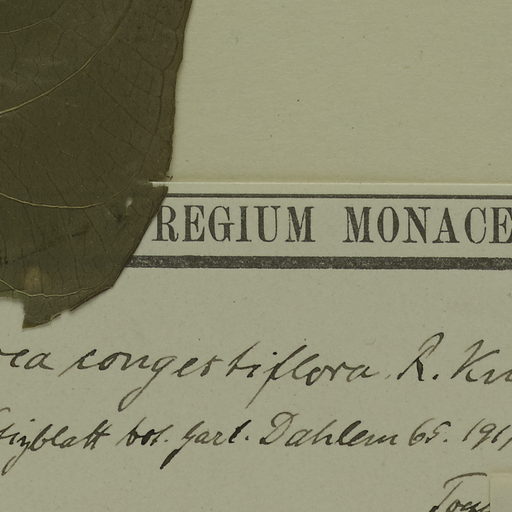 REGIUM MONACE
rea congestiflora R. Kn
bot. Gart. Dahlem 65. 191